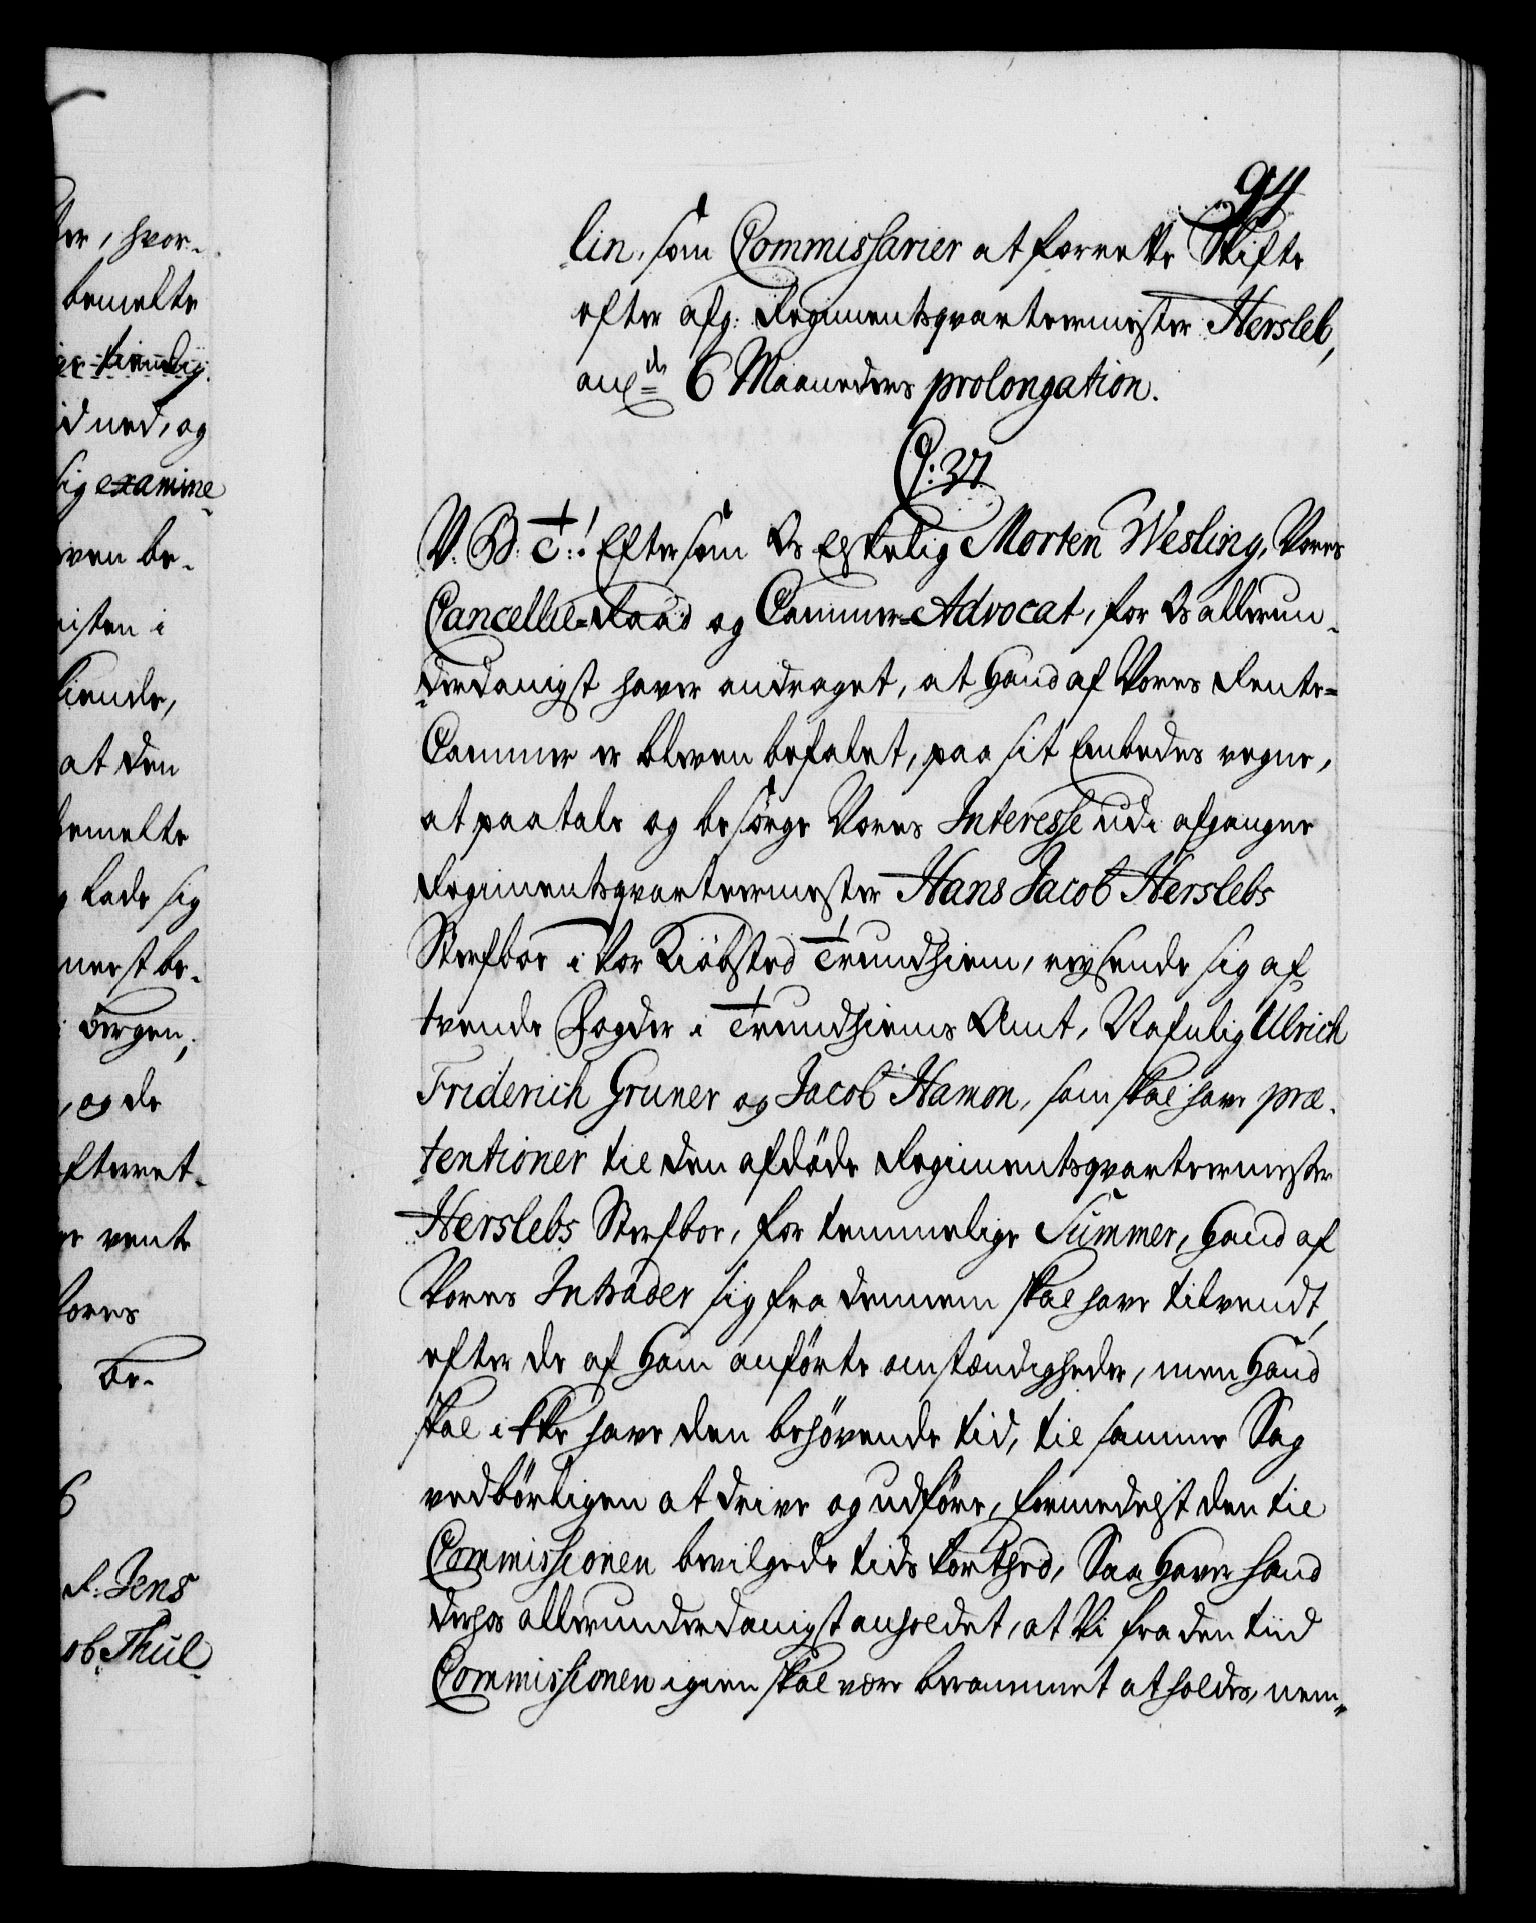 94
lin, som Commissarier at forrette Skifte
efter afg: Regimentsqvarteermester Hersleb,
ang:de 6 Maaneders prolongation.
V. B. T:! Eftersom Os Elskelig Morten Wesling, Vores
Cancellie-Raad og Cammer-Advocat, for Os allerun-
derdanigst haver andraget, at Hand af Vores Rente-
Cammer er bleven befalet, paa sit Embedes vegne,
at paatale og besørge Vores Interesse udi afgangne
Regimentsqvarteermester Hans Jacob Herslebs
Sterfboe i Vor Kiøbsted Trundhiem, reysende sig af
tvende Fogder i Trundhiems Amt, Nafnlig Ulrich
Friderich Gruner og Jacob Hamon, som skal have præ-
tentioner til den afdøde Regimentsqvarteermester
Herslebs Sterfboe, for temmelige Summer, Hand af
Vores Intrader sig fra dennem skal have tilvendt,
efter de af Ham anførte omstændigheder, men Hand
skal ikke have den behøvende tid, til samme Sag
vedbørligen at drive og udføre, formedelst den til
Commissionen bevilgede tids korthed, Saa Haver Hand
derhos allerunderdanigst anholdet, at Vi fra den tiid
Commissionen igien skal være berammet at holdes, nem-
ter, hvor-
bemelte
kiendig
id ned, og
sig examine
ven be-
isten i
iende,
at den
bemelte
g lade sig
nerst be-
Bergen,
, og de
efterret-
vente
Vores
be-
6
Jens
ob Thul